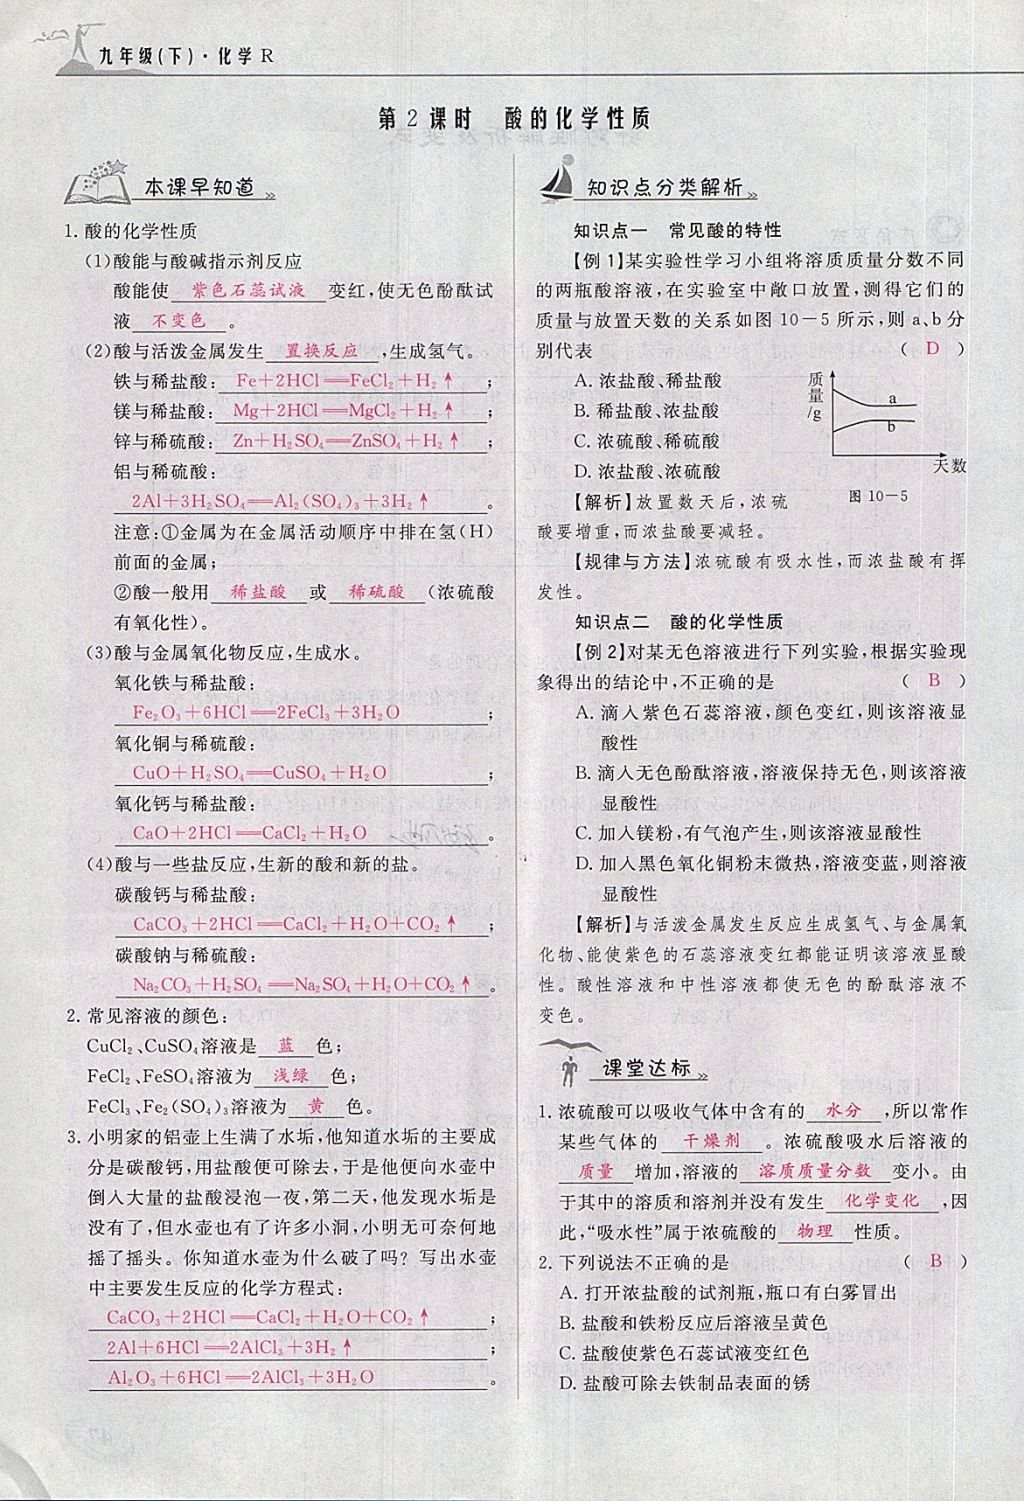 九年级(下)·化学 R
第 2 课时　酸的化学性质
本课早知道
1. 酸的化学性质
(1)酸能与酸碱指示剂反应
酸能使 紫色石蕊试液 变红,使无色酚酞试
液 不变色 。
(2)酸与活泼金属发生 置换反应 ,生成氢气。
铁与稀盐酸: Fe+2HCl══FeCl₂+H₂↑ ;
镁与稀盐酸: Mg+2HCl══MgCl₂+H₂↑ ;
锌与稀硫酸: Zn+H₂SO₄══ZnSO₄+H₂↑ ;
铝与稀硫酸:
2Al+3H₂SO₄══Al₂(SO₄)₃+3H₂↑ 。
注意:①金属为在金属活动顺序中排在氢(H)
前面的金属;
②酸一般用 稀盐酸 或 稀硫酸 (浓硫酸
有氧化性)。
(3)酸与金属氧化物反应,生成水。
氧化铁与稀盐酸:
Fe₂O₃+6HCl══2FeCl₃+3H₂O ;
氧化铜与稀硫酸:
CuO+H₂SO₄══CuSO₄+H₂O ;
氧化钙与稀盐酸:
CaO+2HCl══CaCl₂+H₂O 。
(4)酸与一些盐反应,生新的酸和新的盐。
碳酸钙与稀盐酸:
CaCO₃+2HCl══CaCl₂+H₂O+CO₂↑ ;
碳酸钠与稀硫酸:
Na₂CO₃+H₂SO₄══Na₂SO₄+H₂O+CO₂↑ 。
2. 常见溶液的颜色:
CuCl₂、CuSO₄溶液是 蓝 色;
FeCl₂、FeSO₄溶液为 浅绿 色;
FeCl₃、Fe₂(SO₄)₃溶液为 黄 色。
3. 小明家的铝壶上生满了水垢,他知道水垢的主要成
分是碳酸钙,用盐酸便可除去,于是他便向水壶中
倒入大量的盐酸浸泡一夜,第二天,他发现水垢是
没有了,但水壶也有了许多小洞,小明无可奈何地
摇了摇头。你知道水壶为什么破了吗?写出水壶
中主要发生反应的化学方程式:
CaCO₃+2HCl══CaCl₂+H₂O+CO₂↑ ;
2Al+6HCl══2AlCl₃+3H₂↑ ;
Al₂O₃+6HCl══2AlCl₃+3H₂O 。
知识点分类解析
知识点一　常见酸的特性
【例 1】某实验性学习小组将溶质质量分数不同
的两瓶酸溶液,在实验室中敞口放置,测得它们的
质量与放置天数的关系如图 10－5 所示,则 a、b 分
别代表 ( D )
A. 浓盐酸、稀盐酸
B. 稀盐酸、浓盐酸
C. 浓硫酸、稀硫酸
D. 浓盐酸、浓硫酸
质
量
/g
a
b
天数
图 10－5
【解析】放置数天后,浓硫
酸要增重,而浓盐酸要减轻。
【规律与方法】浓硫酸有吸水性,而浓盐酸有挥
发性。
知识点二　酸的化学性质
【例 2】对某无色溶液进行下列实验,根据实验现
象得出的结论中,不正确的是 ( B )
A. 滴入紫色石蕊溶液,颜色变红,则该溶液显
酸性
B. 滴入无色酚酞溶液,溶液保持无色,则该溶液
显酸性
C. 加入镁粉,有气泡产生,则该溶液显酸性
D. 加入黑色氧化铜粉末微热,溶液变蓝,则溶液
显酸性
【解析】与活泼金属发生反应生成氢气、与金属氧
化物、能使紫色的石蕊溶液变红都能证明该溶液显酸
性。酸性溶液和中性溶液都使无色的酚酞溶液不
变色。
课堂达标
1. 浓硫酸可以吸收气体中含有的 水分 ,所以常作
某些气体的 干燥剂 。浓硫酸吸水后溶液的
质量 增加,溶液的 溶质质量分数 变小。由
于其中的溶质和溶剂并没有发生 化学变化 ,因
此,“吸水性”属于浓硫酸的 物理 性质。
2. 下列说法不正确的是 ( B )
A. 打开浓盐酸的试剂瓶,瓶口有白雾冒出
B. 盐酸和铁粉反应后溶液呈黄色
C. 盐酸使紫色石蕊试液变红色
D. 盐酸可除去铁制品表面的锈